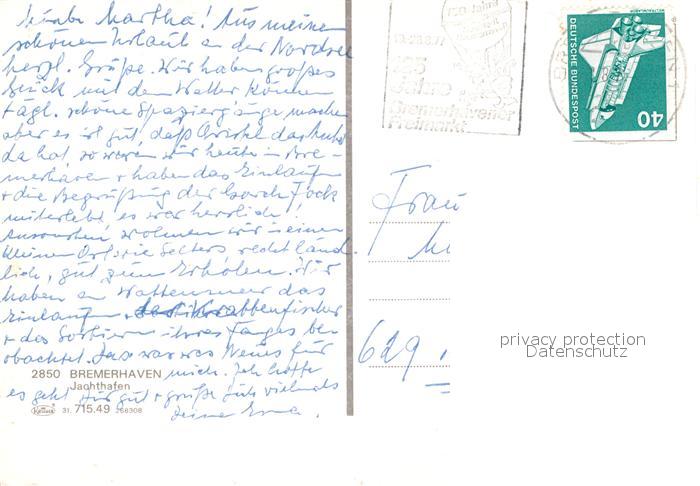 Liebe Martha! Aus meinem
schönen Urlaub an der Nordsee
herzl. Grüße. Wir haben großes
Glück mit dem Wetter können
tägl. schöne Spaziergänge machen
aber es ist gut, daß Christel das Auto
da hat, so waren wir heute in Bre-
merhaven + haben das Einlaufen
+ die Begrüßung der Gorch Fock
miterlebt, es war herrlich!
Ansonsten wohnen wir in einem
kleinen Ort wie Selters recht länd-
lich, gut zum Erholen. Wir
haben am Wattenmeer das
Einlaufen der Krabbenfischer
+ das Sortieren ihres Fanges be
obachtet. Das war was Neues für
mich. Ich hoffe
es geht Dir gut + grüße Dich vielmals
Deine Erna.
2850 BREMERHAVEN
Jachthafen
Krüger 31. 715.49 268308
150 Jahre
Jahre
Bremerhavener
Freimarkt
DEUTSCHE BUNDESPOST
40
Frau
629
privacy protection
Datenschutz